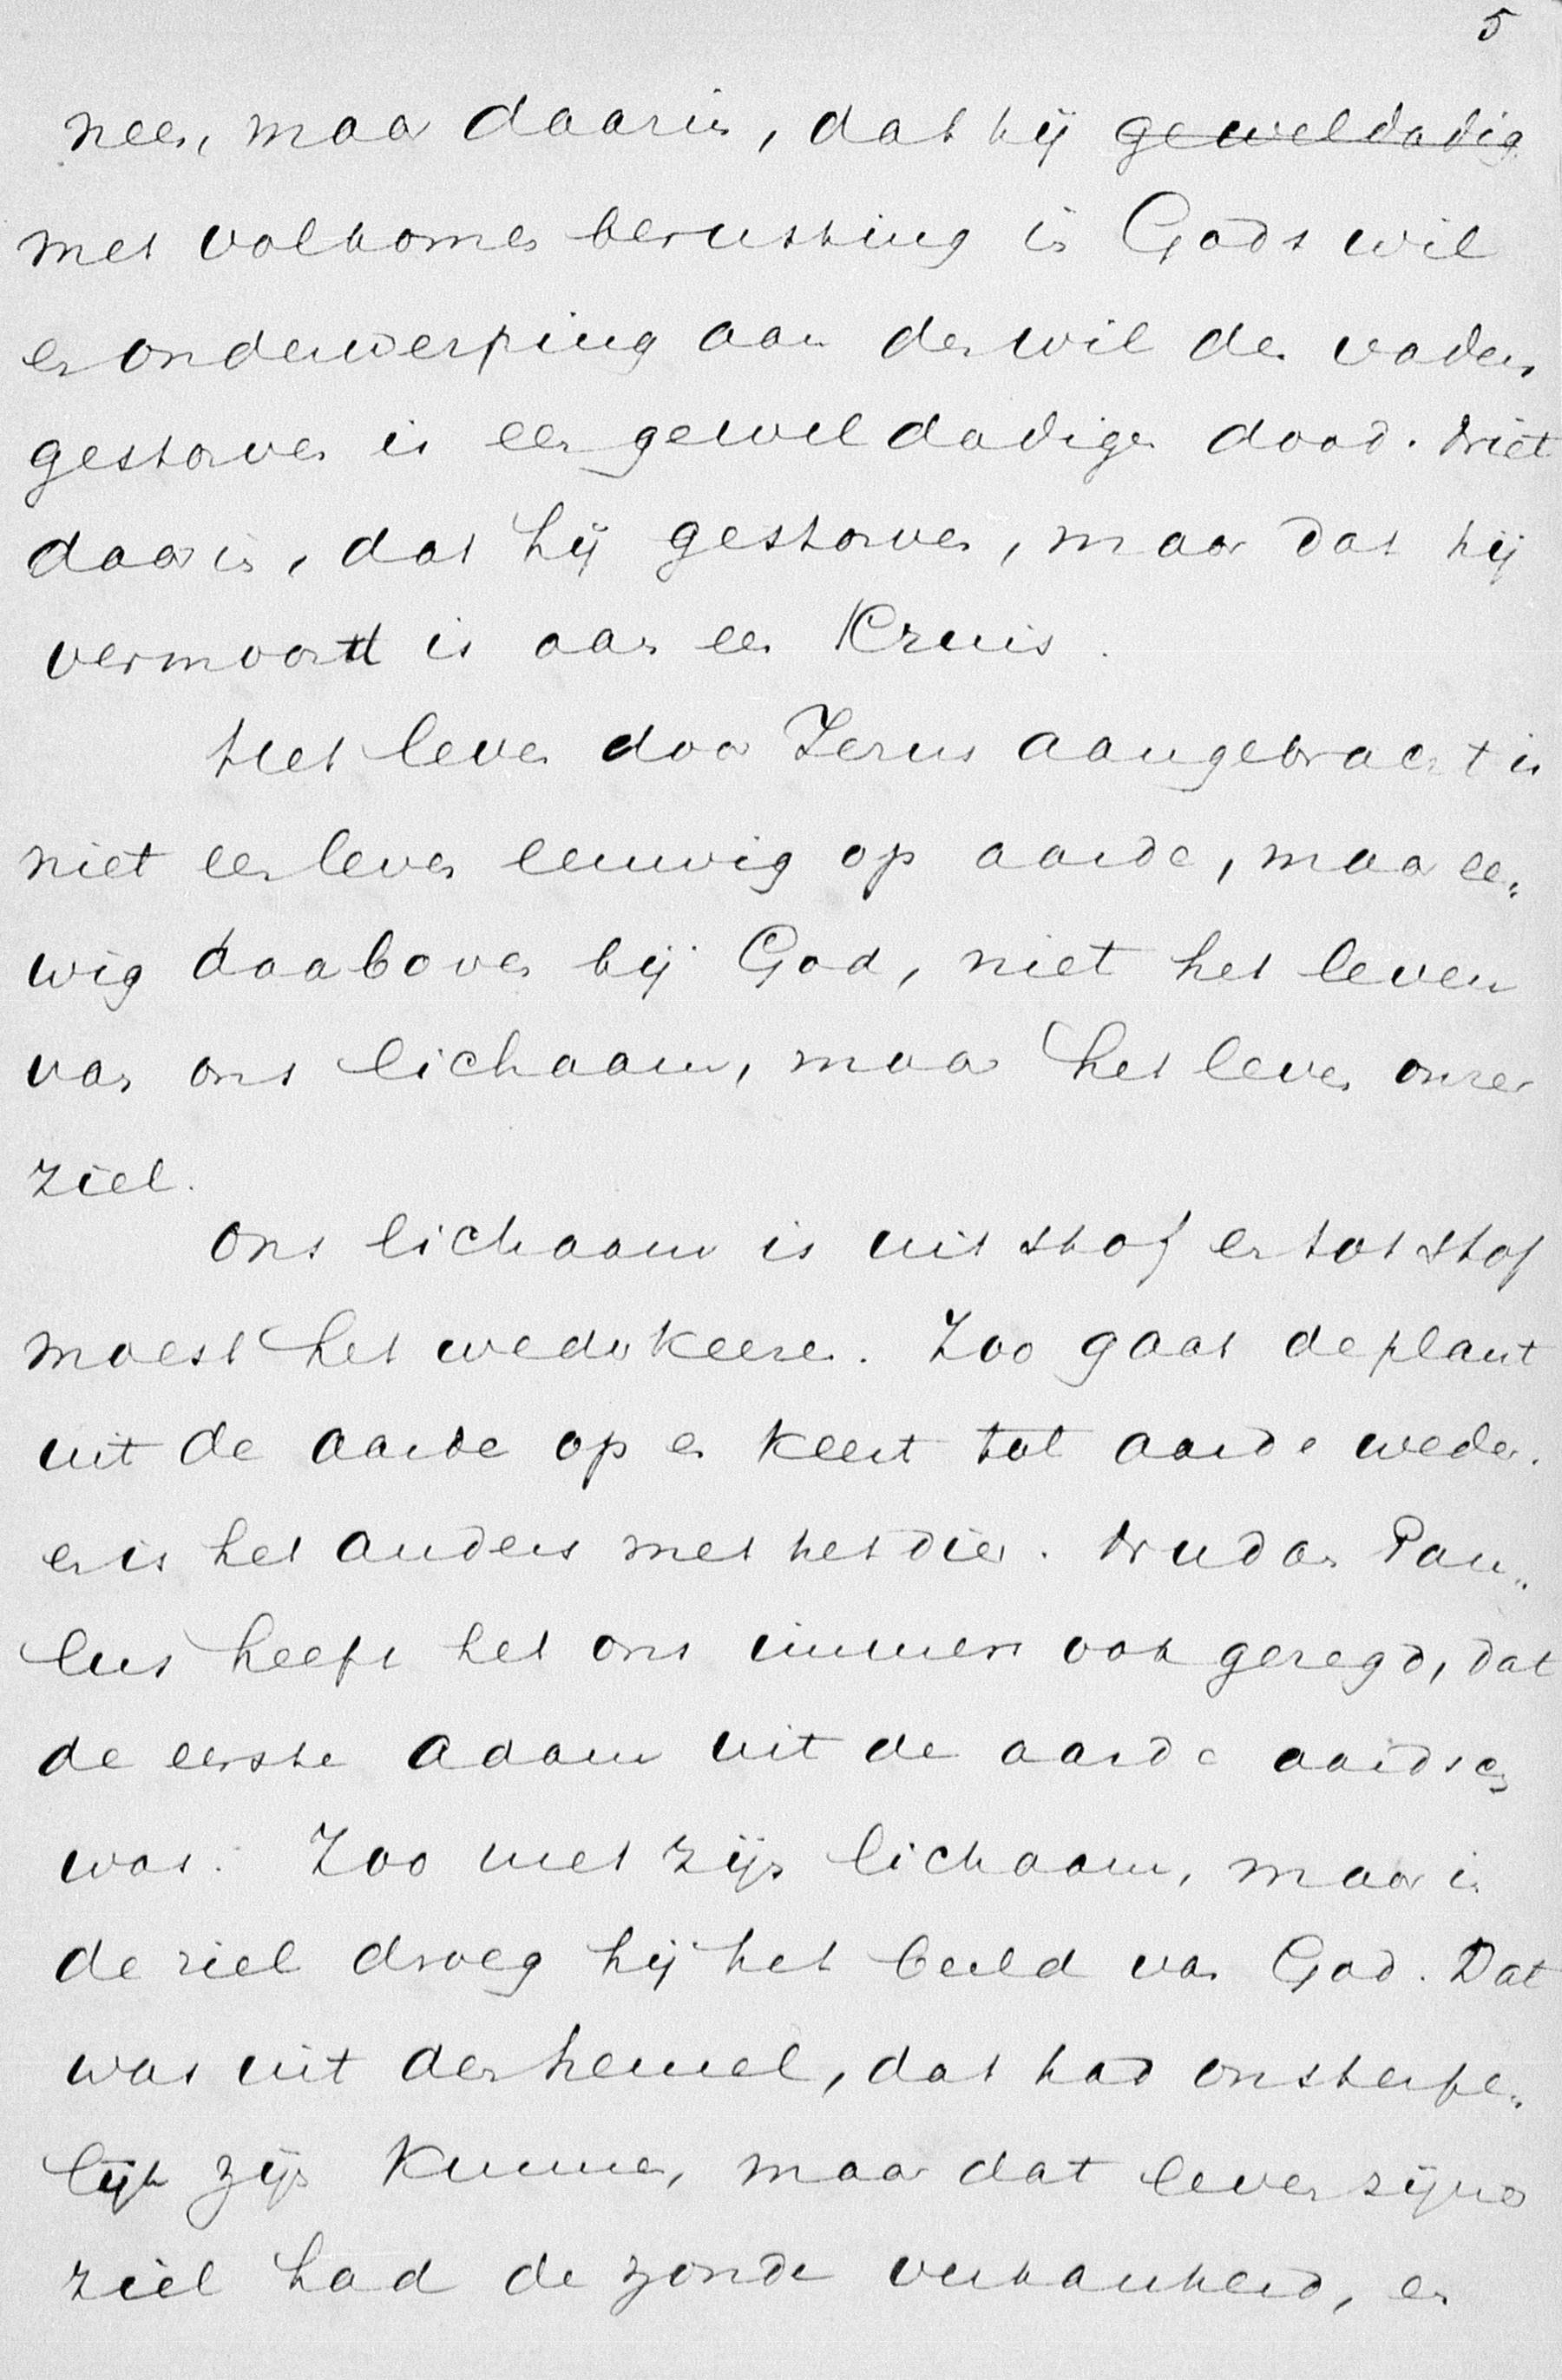 5
neer, maar daarin, dat hij geweldadig
met volkomen berusting in Gods wil
en onderwerping aan den wil des vaders
gestorven is een geweldadigen dood. Niet
daarin, dat hij gestorven, maar dat hij
vermoord is aan een Kruis.
Het leven door Jezus aangebracht is
niet een leven eeuwig op aarde, maar eeu„
wig daarboven bij God, niet het leven
van ons lichaam, maar het leven onzer
ziel.
Ons lichaam is uit stof en tot stof
moest het wederkeeren. Zoo gaat de plant
uit de aarde op en keert tot aarde weder.
en is het anders met het dier.
lus heeft het ons immers ook gezegd, dat
de eerste Adam uit de aarde aardsch
was. Zoo met zijn lichaam, maar in
de ziel droeg hij het beeld van God. Dat
was uit den hemel, dat had onsterfe„
lijk zijn kunnen, maar dat leven zijner
ziel had de zonde verkankerd, en